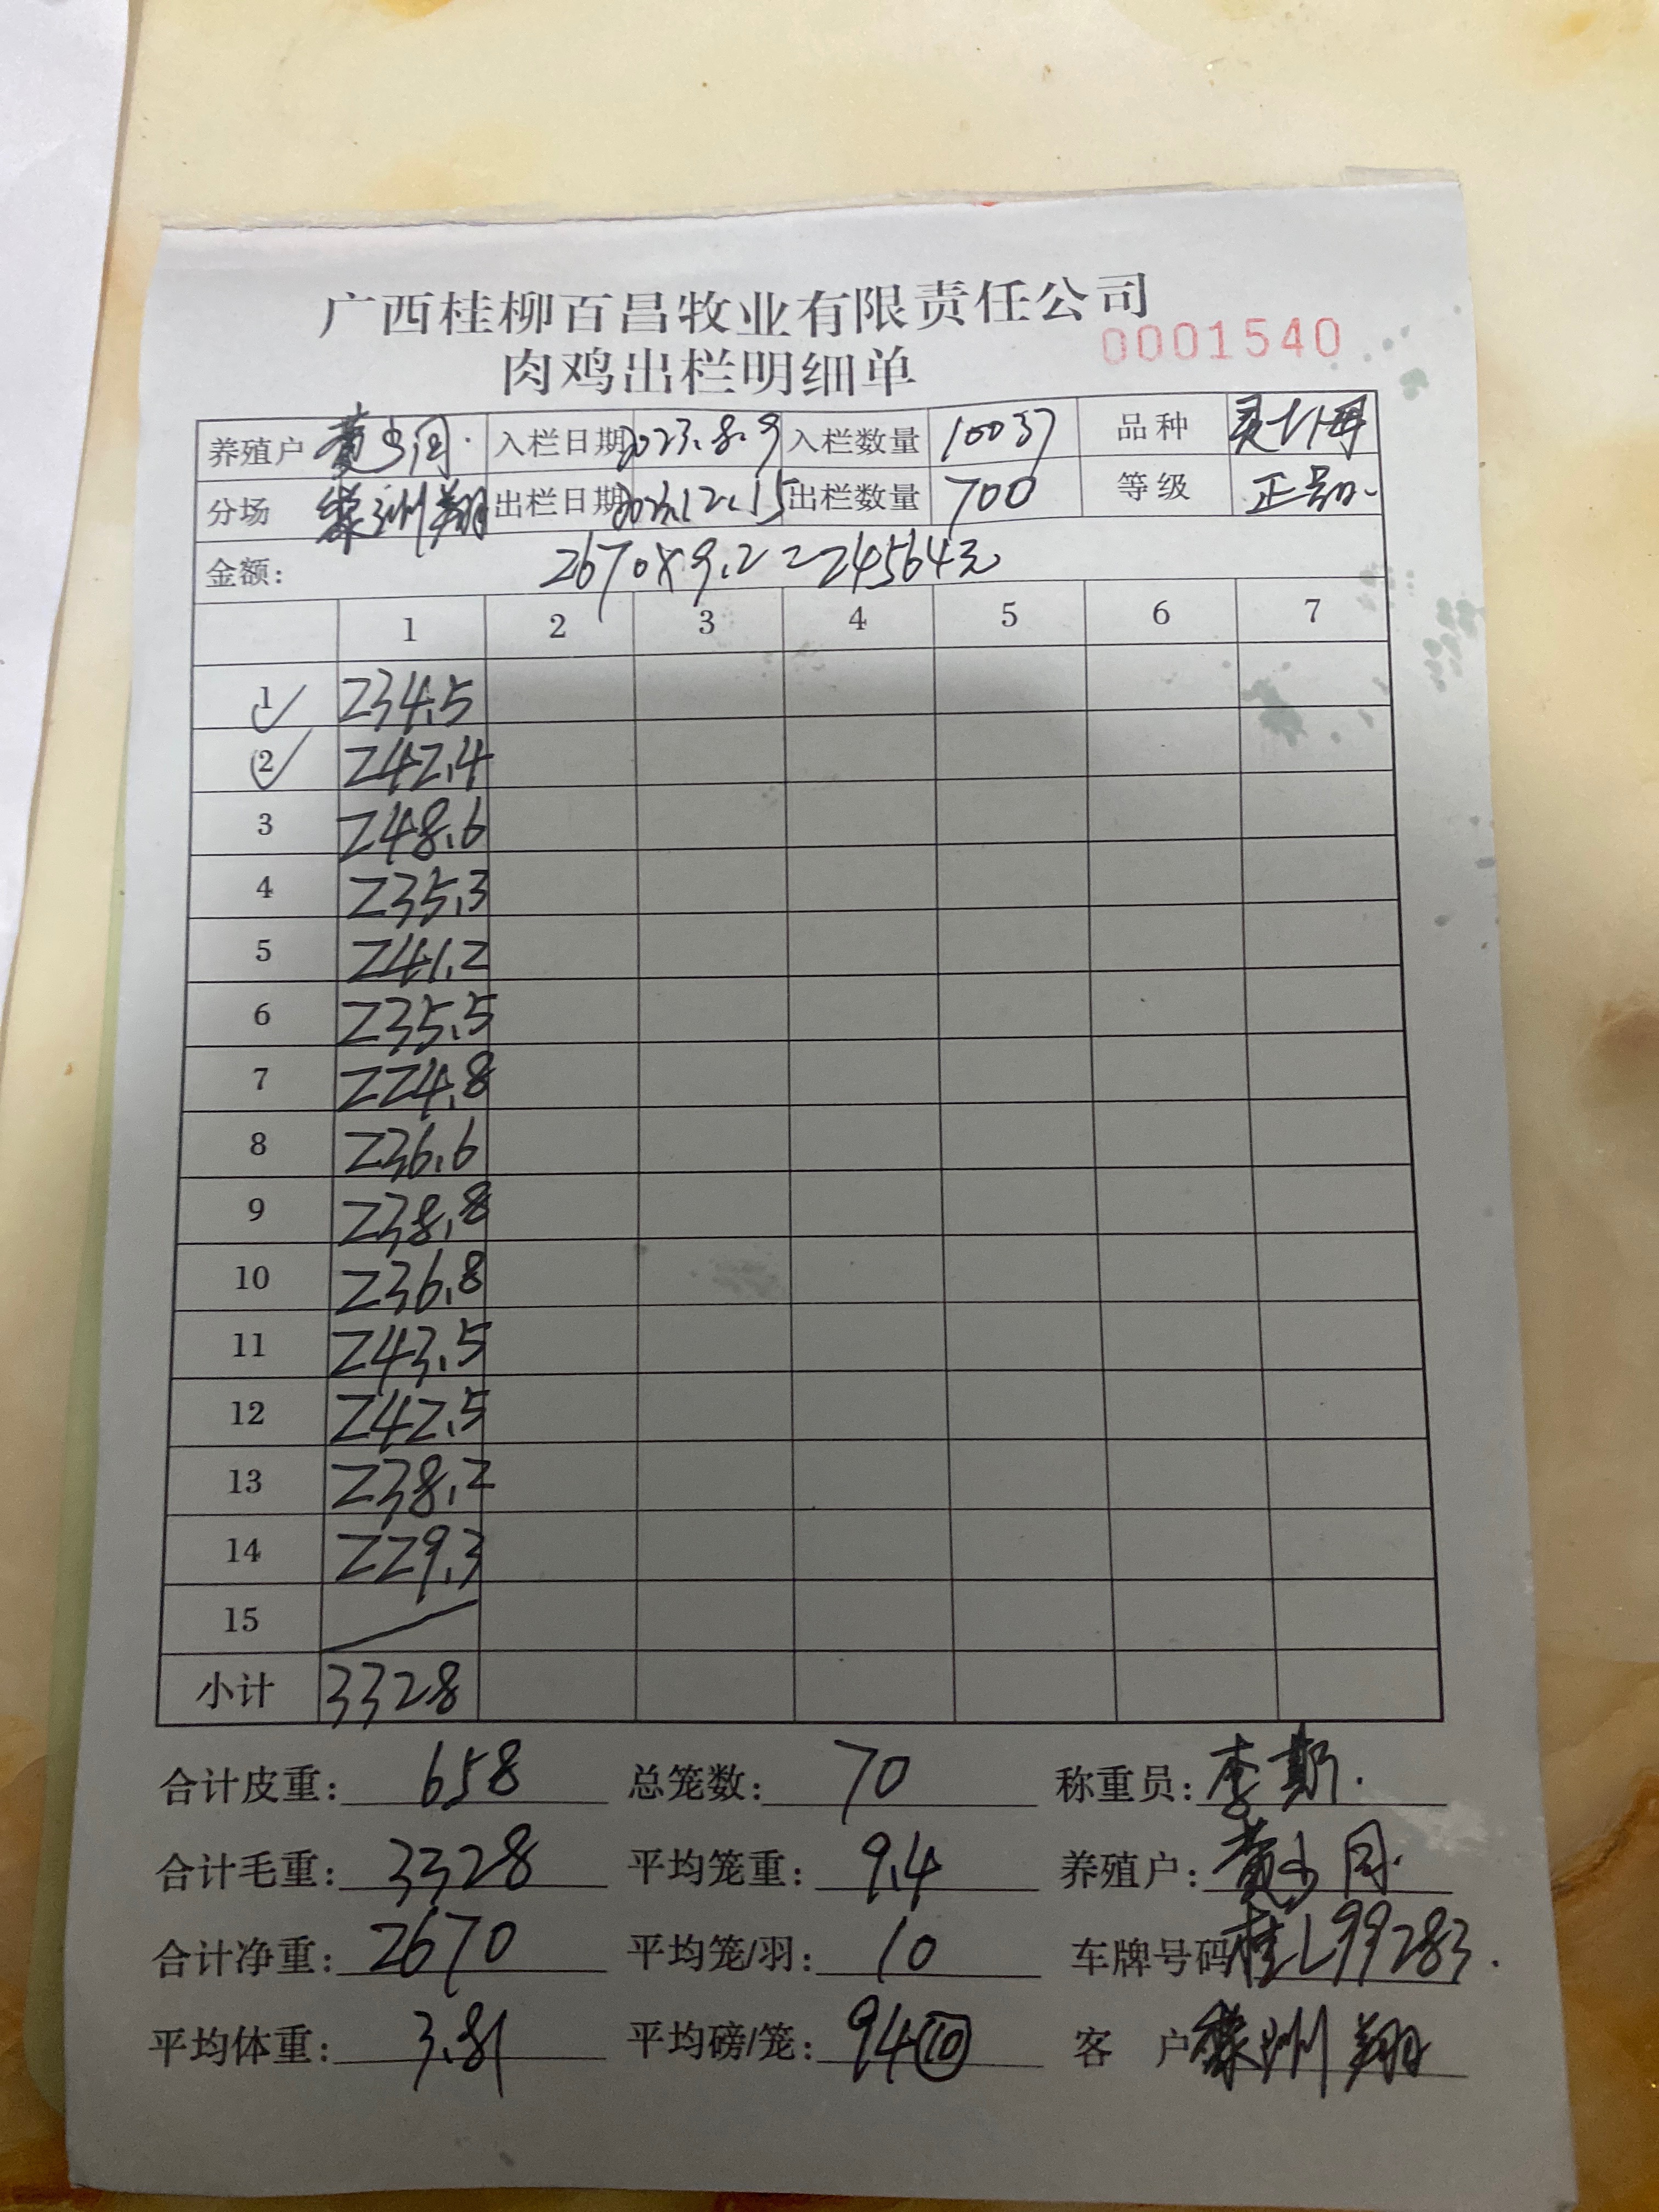 广西桂柳百昌牧业有限责任公司
肉鸡出栏明细单 0001540
养殖户 黄少同 入栏日期 2023.8.9 入栏数量 10037 品种 灵山母
分场 洲翔 出栏日期 2023.12.15 出栏数量 700 等级 正品
金额: 2670×9.2=24564元
1 2 3 4 5 6 7
1 234.5
2 242.4
3 248.6
4 235.3
5 241.2
6 235.5
7 224.8
8 236.6
9 238.8
10 236.8
11 243.5
12 242.5
13 238.2
14 229.3
15
小计 3328
合计皮重: 658 总笼数: 70 称重员: 李斯
合计毛重: 3328 平均笼重: 9.4 养殖户: 黄少同
合计净重: 2670 平均笼/羽: 10 车牌号码 桂L99283
平均体重: 3.81 平均磅/笼: 94⑩ 客户 洲翔